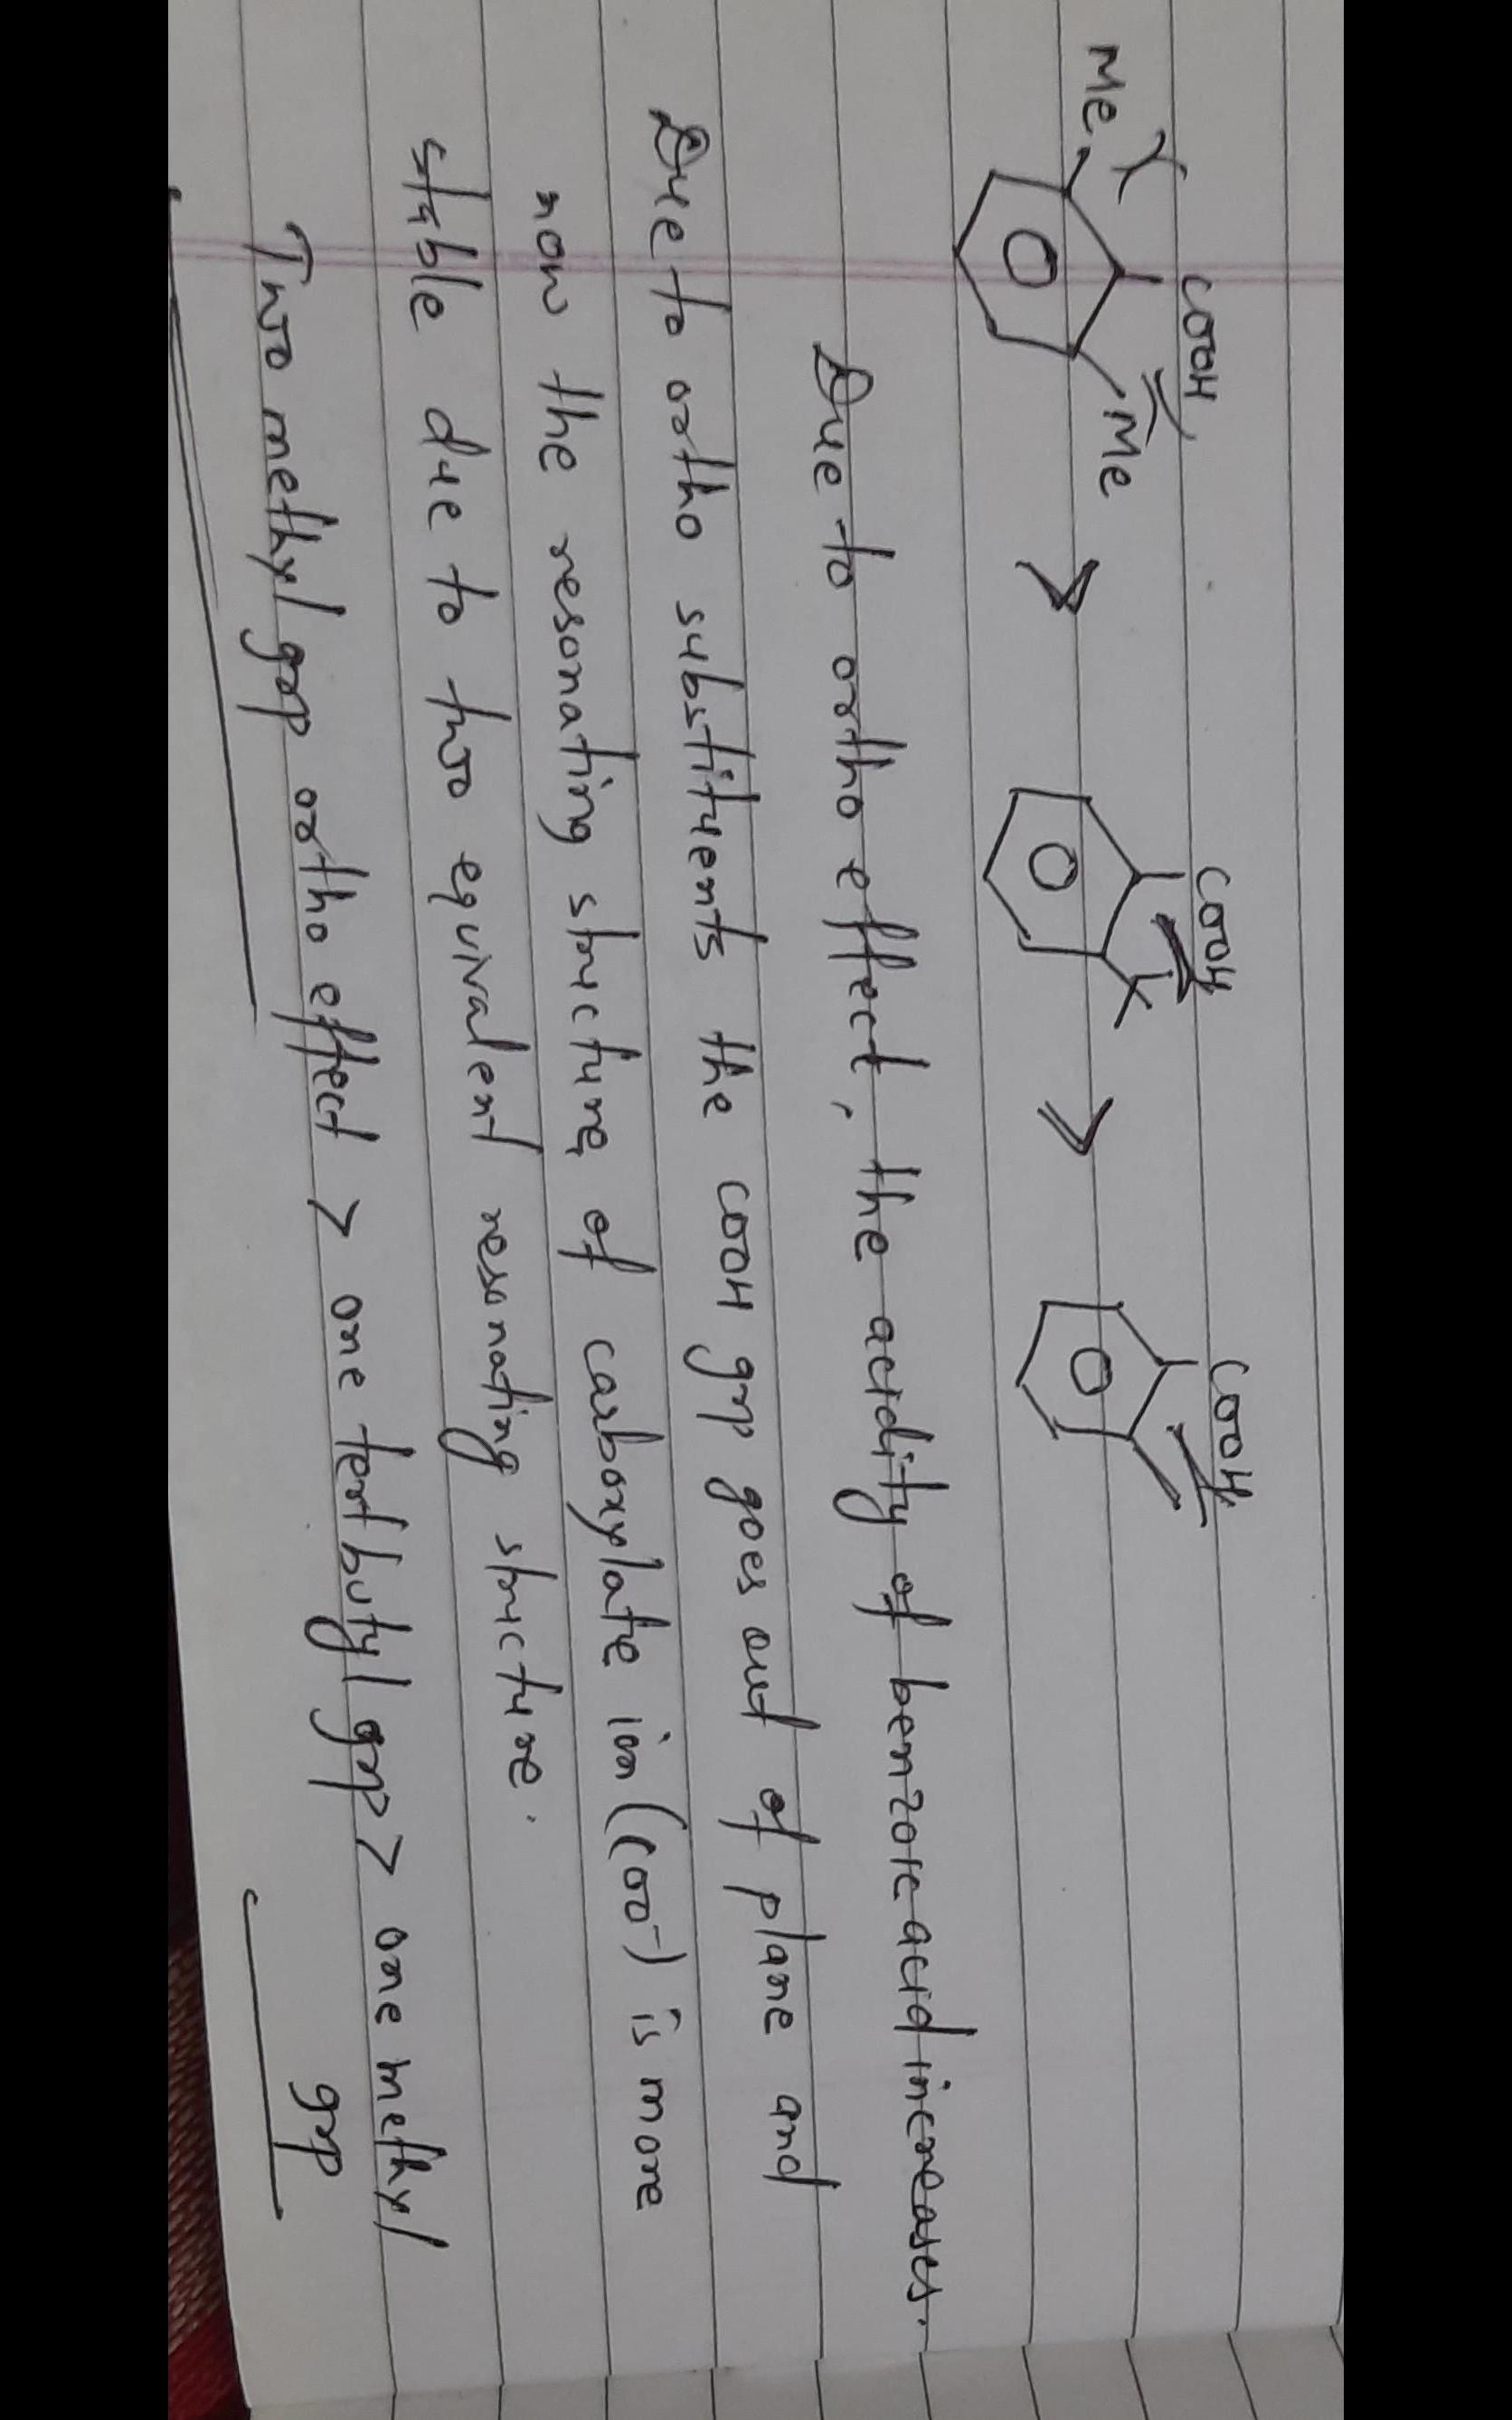 COOH COOH COOH
Me Me > >
Due to ortho effect, the acidity of benzoic acid increases.
Due to ortho substituents the COOH grp goes out of plane and
now the resonating structure of carboxylate ion (COO-) is more
stable due to two equivalent resonating structure.
Two methyl grp ortho effect > one tertbutyl grp > one methyl
grp